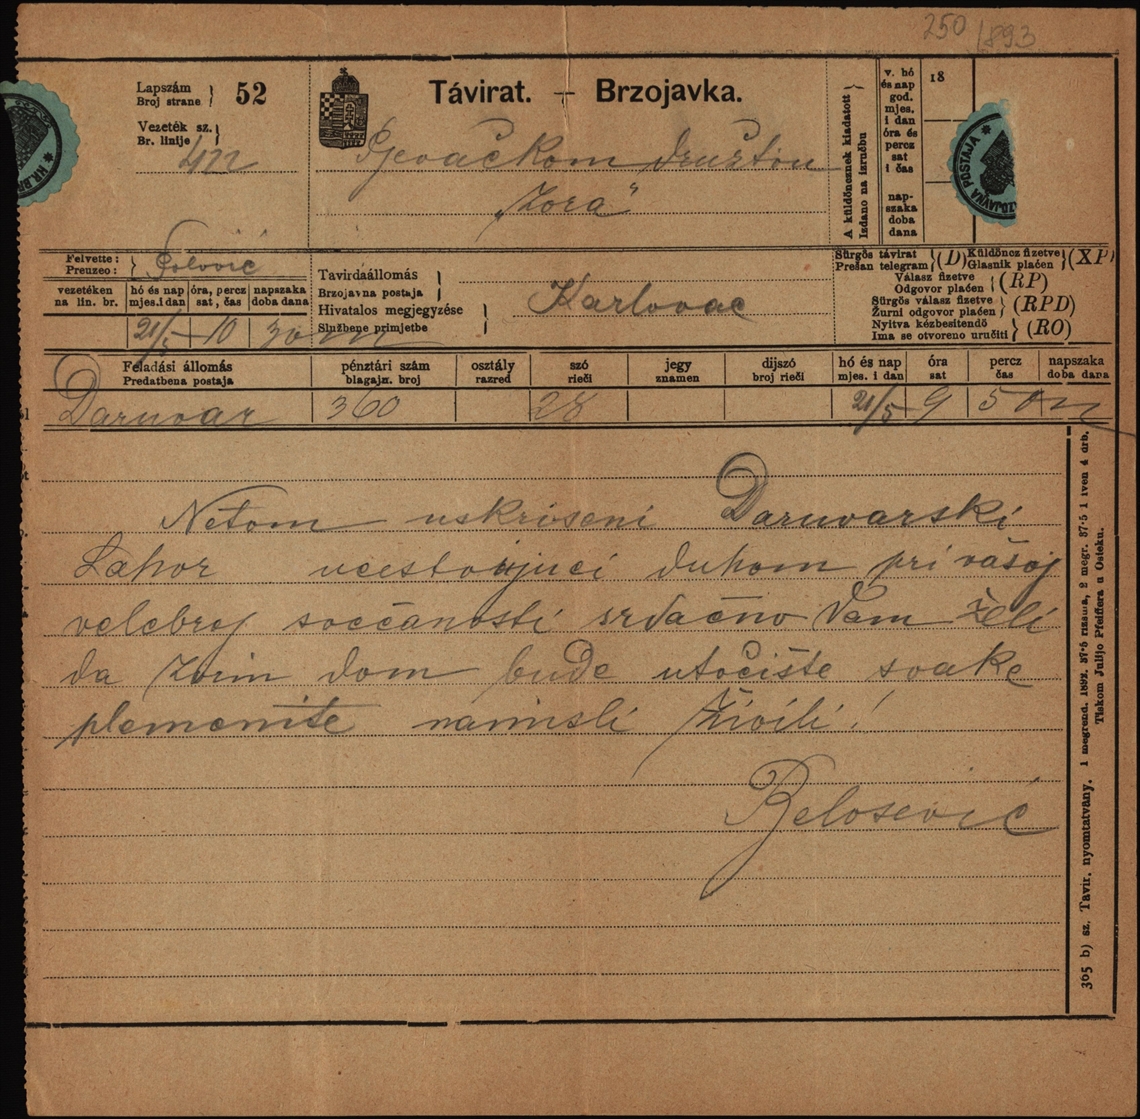 250 1893
Lapszám
Broj strane } 52
Vezeték sz.
Br. linije }
422
Távirat. — Brzojavka.
Pjevačkom družtvu
„Zora“
A küldöncznek kiadatott
Izdano na izručbu
v. hó
és nap
god.
mjes.
i dan
óra és
percz
sat
i čas
nap-
szaka
doba
dana
18
HR. BR
ZOJAVNA POSTAJA
Felvette:
Preuzeo: }
vezetéken
na lin. br.
hó és nap
mjes. i dan
óra, percz
sat, čas
napszaka
doba dana
21/5 10 30 m
Tavirdaállomás
Brzojavna postaja }
Hivatalos megjegyzése
Službene primjetbe }
Karlovac
Sürgős távirat
Prešan telegram } (D)
Küldöncz fizetve
Glasnik plaćen } (XP)
Válasz fizetve
Odgovor plaćen } (RP)
Sürgős válasz fizetve
Žurni odgovor plaćen } (RPD)
Nyitva kézbesitendő
Ima se otvoreno uručiti } (RO)
Feladási állomás
Predatbena postaja
pénztári szám
blagajn. broj
osztály
razred
szó
rieči
jegy
znamen
dijszó
broj rieči
hó és nap
mjes. i dan
óra
sat
percz
čas
napszaka
doba dana
Daruvar 360 28 21/5 9 50
Netom uskrišeni Daruvarski
Lahor učestvujuci duhom pri vašoj
velebroj svečanosti srdačno Vam želi
da Vam dom bude utočište svake
plemenite namisli Živili!
Belosević
365 b) sz. Tavir. nyomtatvány. 1 megrend. 1892. 37·5 rizsma, 2 megr. 37·5 1 iven 4 drb.
Tiskom Julijo Pfeiffera u Osieku.